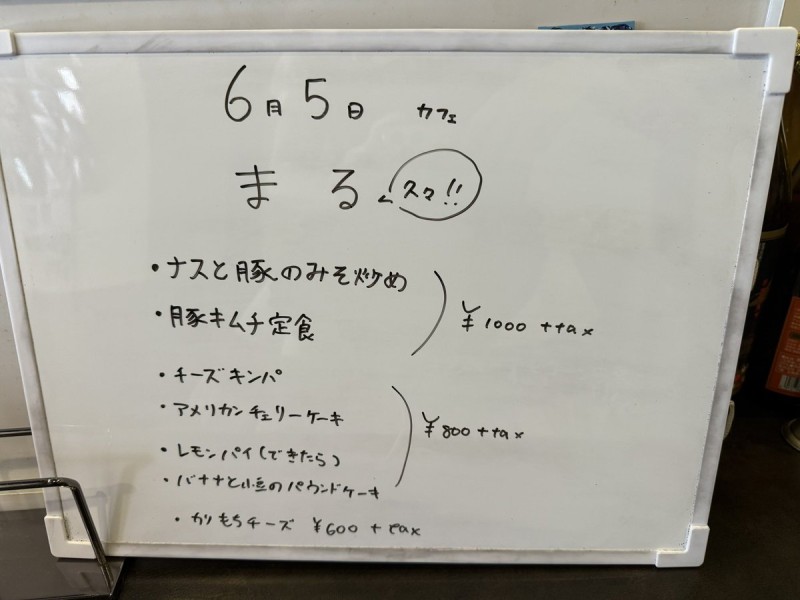 6月5日 カフェ
まる 久々!!
・ナスと豚のみそ炒め
・豚キムチ定食
¥1000 +tax
・チーズキンパ
・アメリカンチェリーケーキ
・レモンパイ(できたら)
・バナナと小豆のパウンドケーキ
¥800 +tax
・カリもちチーズ ¥600 +tax